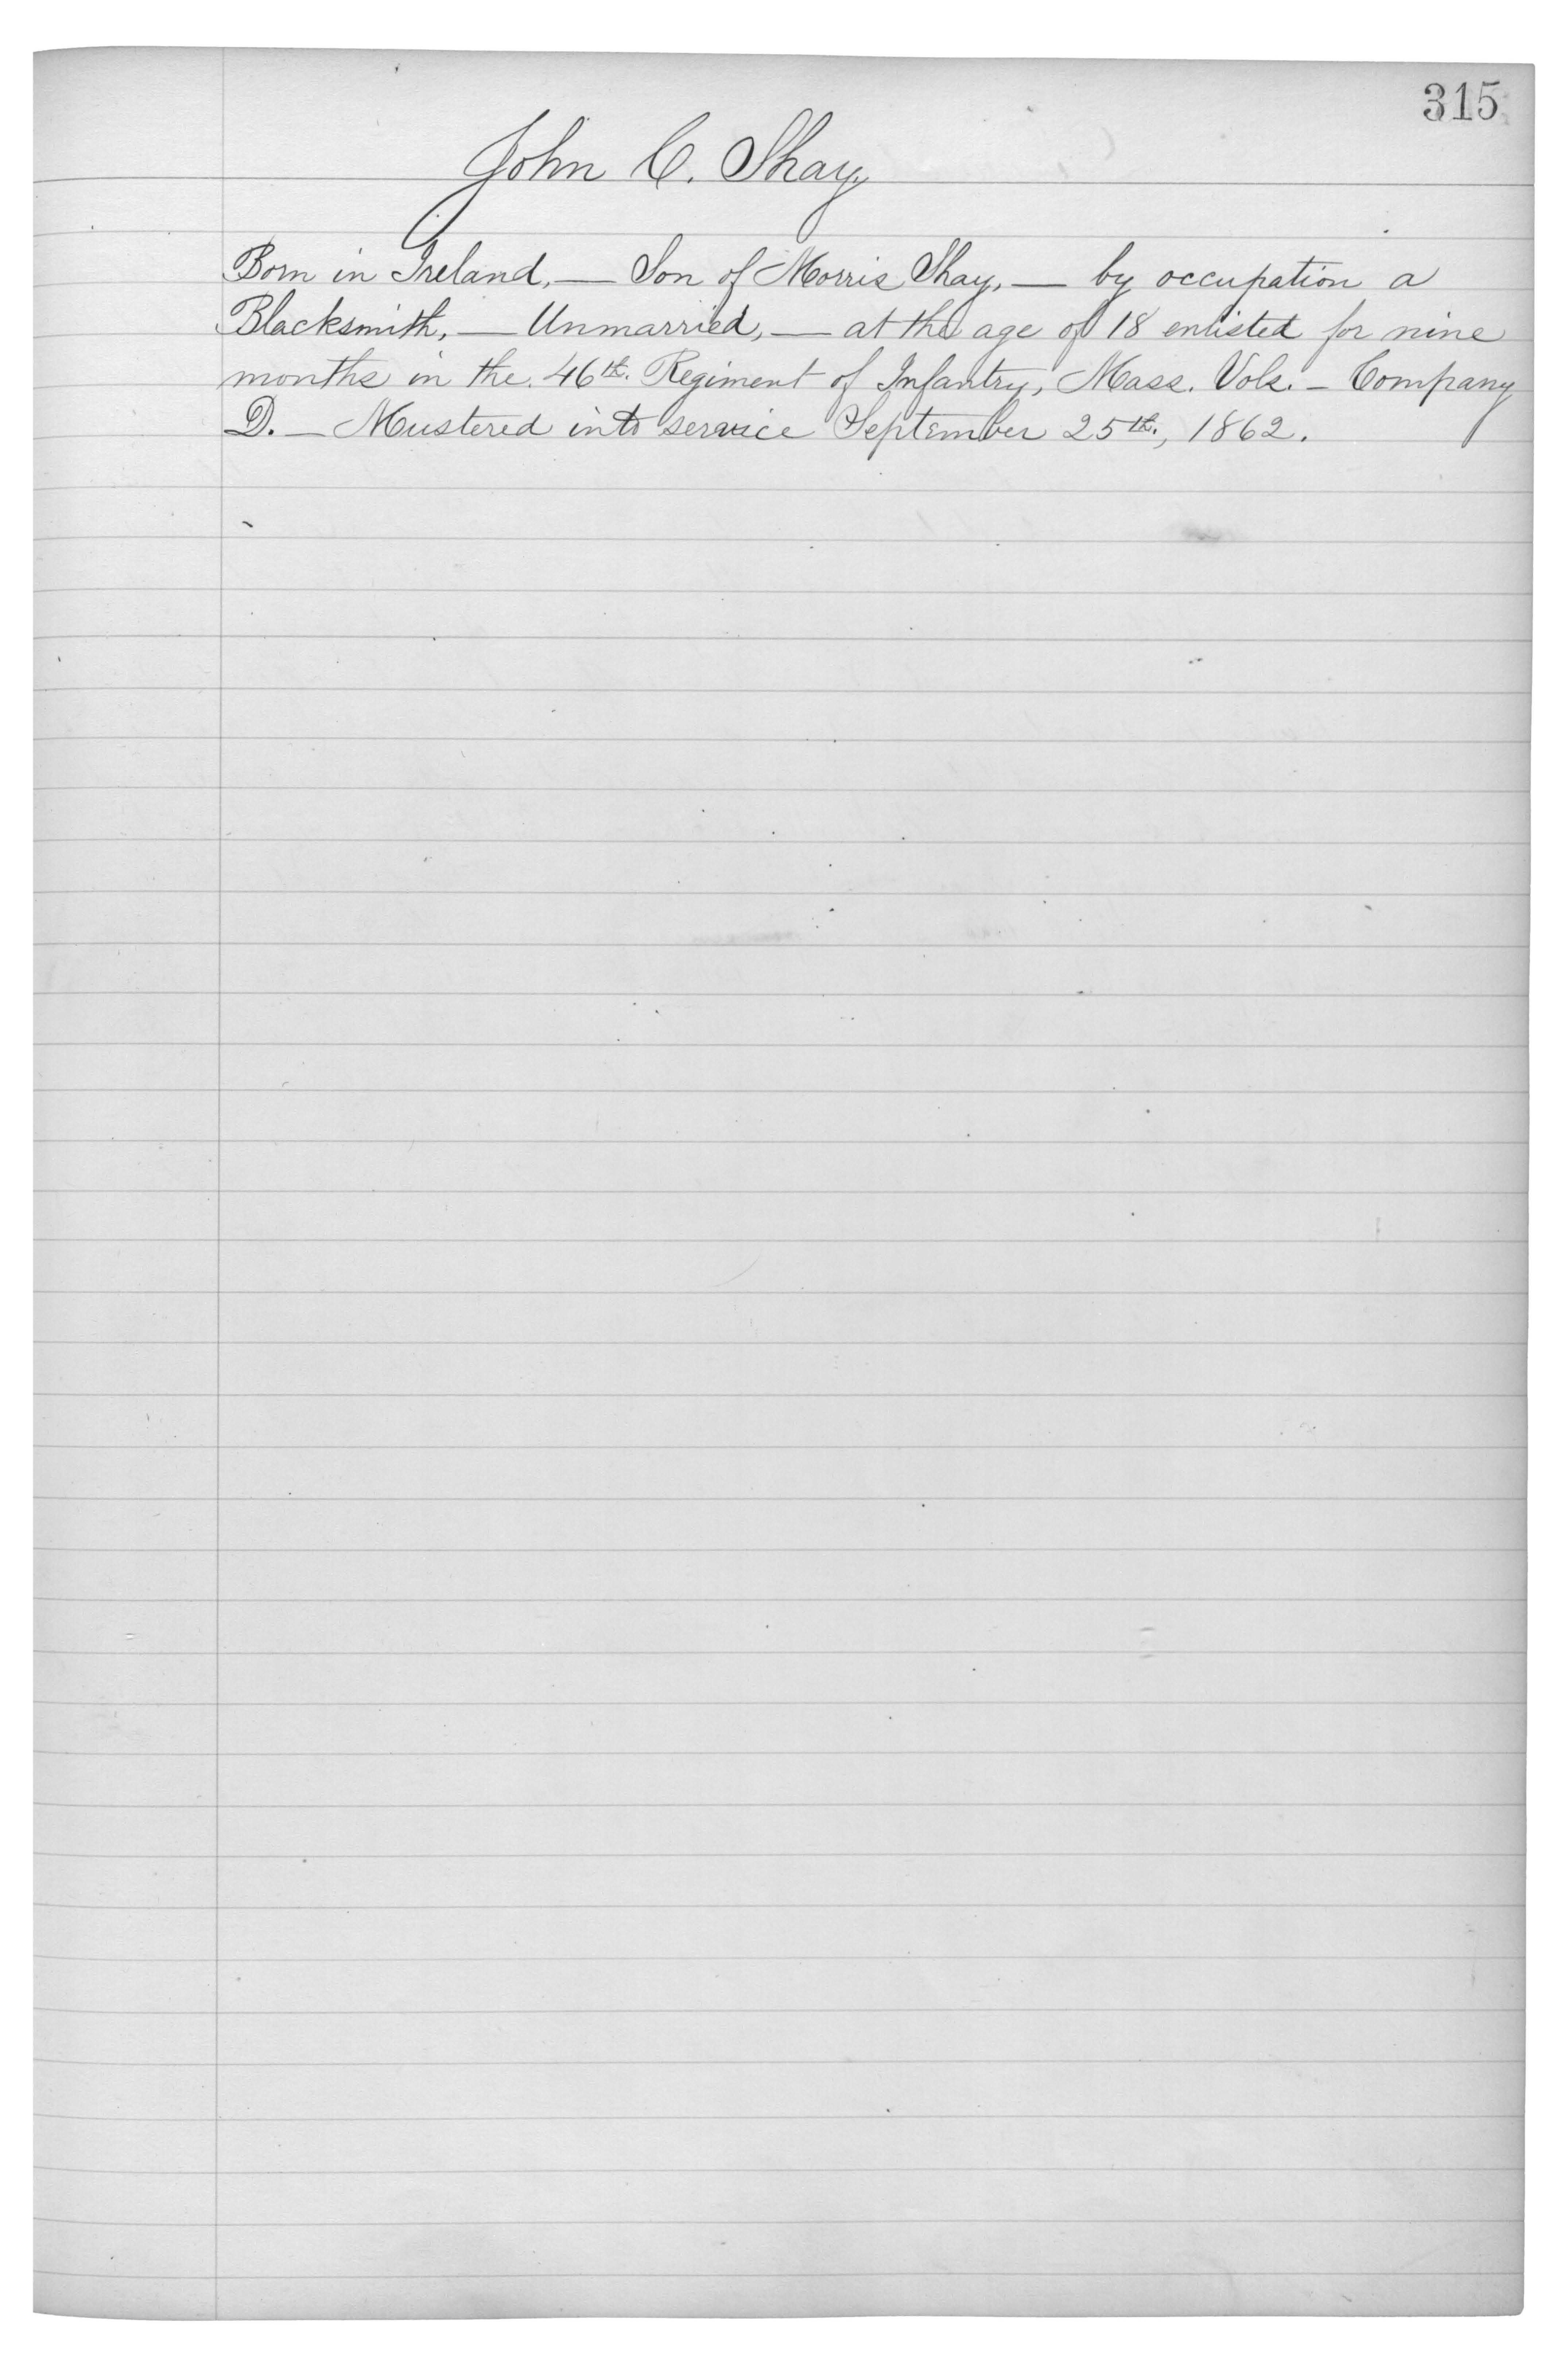 315
John C. Shay.
Born in Ireland, — Son of Morris Shay, — by occupation a
Blacksmith, — Unmarried, — at the age of 18 enlisted for nine
months in the 46th. Regiment of Infantry, Mass. Vols. — Company
D. — Mustered into service September 25th., 1862.